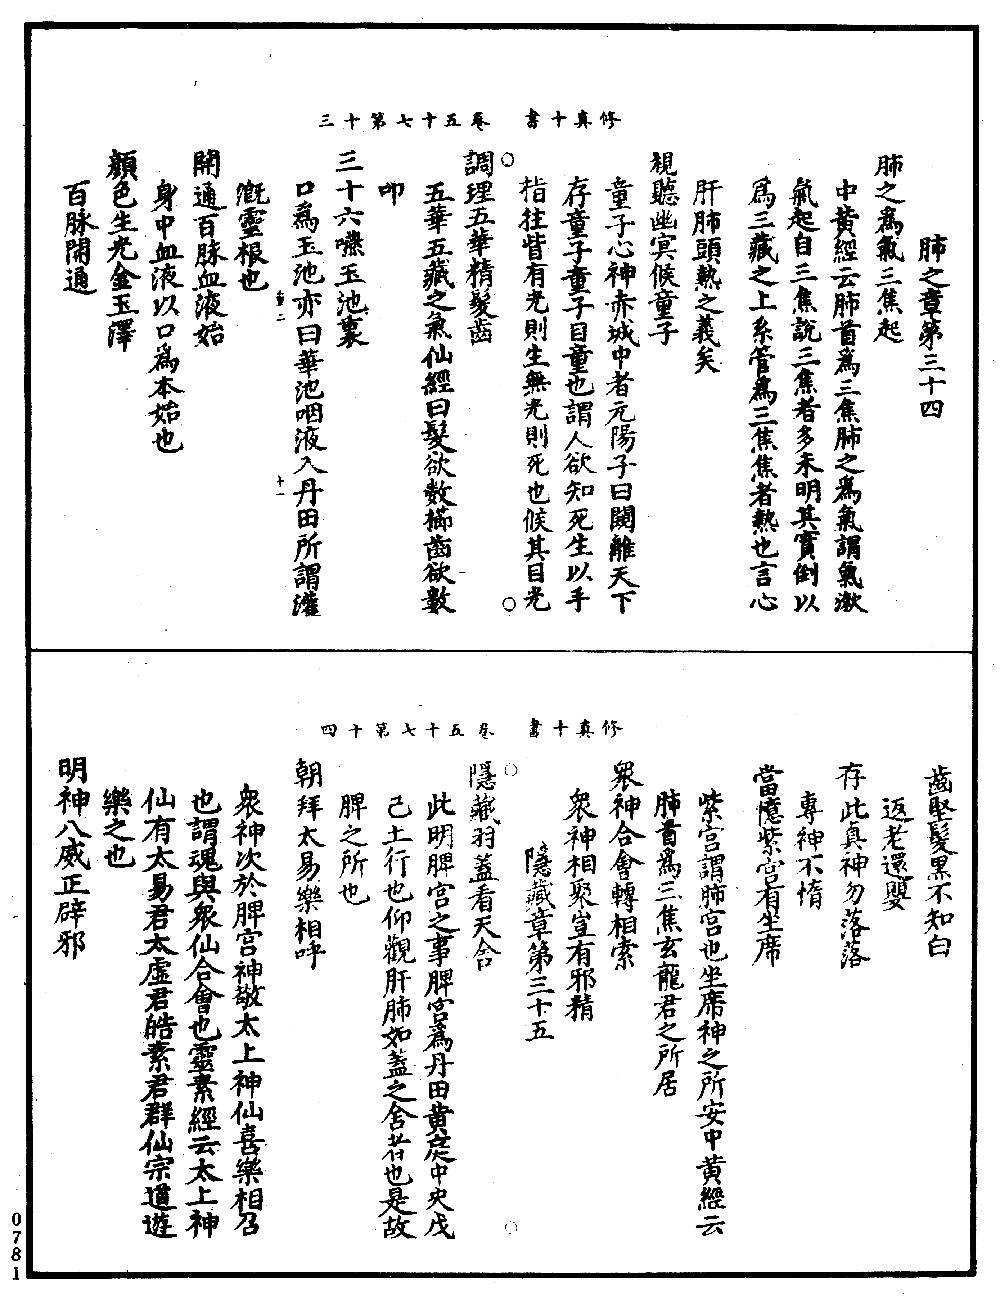 修真十書　卷五十七第十三
肺之章第三十四
肺之爲氣三焦起
中黃經云肺首爲三焦肺之爲氣謂氣漱
氣起自三焦說三焦者多未明其實倒以
爲三藏之上系管爲三焦焦者熱也言心
肝肺頭熱之義矣
視聽幽冥候童子
童子心神赤城中者元陽子曰閱離天下
存童子童子目童也謂人欲知死生以手
指拄眥有光則生無光則死也候其目光
調理五華精髮齒
五華五藏之氣仙經曰髮欲數櫛齒欲數
叩
三十六嚥玉池裏
口爲玉池亦曰華池咽液入丹田所謂灌
漑靈根也
開通百脉血液始
身中血液以口爲本始也
顏色生光金玉澤
百脉開通
修真十書　卷五十七第十四
齒堅髮黑不知白
返老還嬰
存此真神勿落落
專神不惰
當憶紫宮有坐席
紫宮謂肺宮也坐席神之所安中黃經云
肺首爲三焦玄龍君之所居
衆神合會轉相索
衆神相聚豈有邪精
隱藏章第三十五
隱藏羽蓋看天舍
此明脾宮之事脾宮爲丹田黃庭中央戊
己土行也仰觀肝肺如蓋之舍者也是故
脾之所也
朝拜太易樂相呼
衆神次於脾宮神敬太上神仙喜樂相召
也謂魂與衆仙合會也靈素經云太上神
仙有太易君太虛君皓素君群仙宗道遊
樂之也
明神八威正辟邪
0781